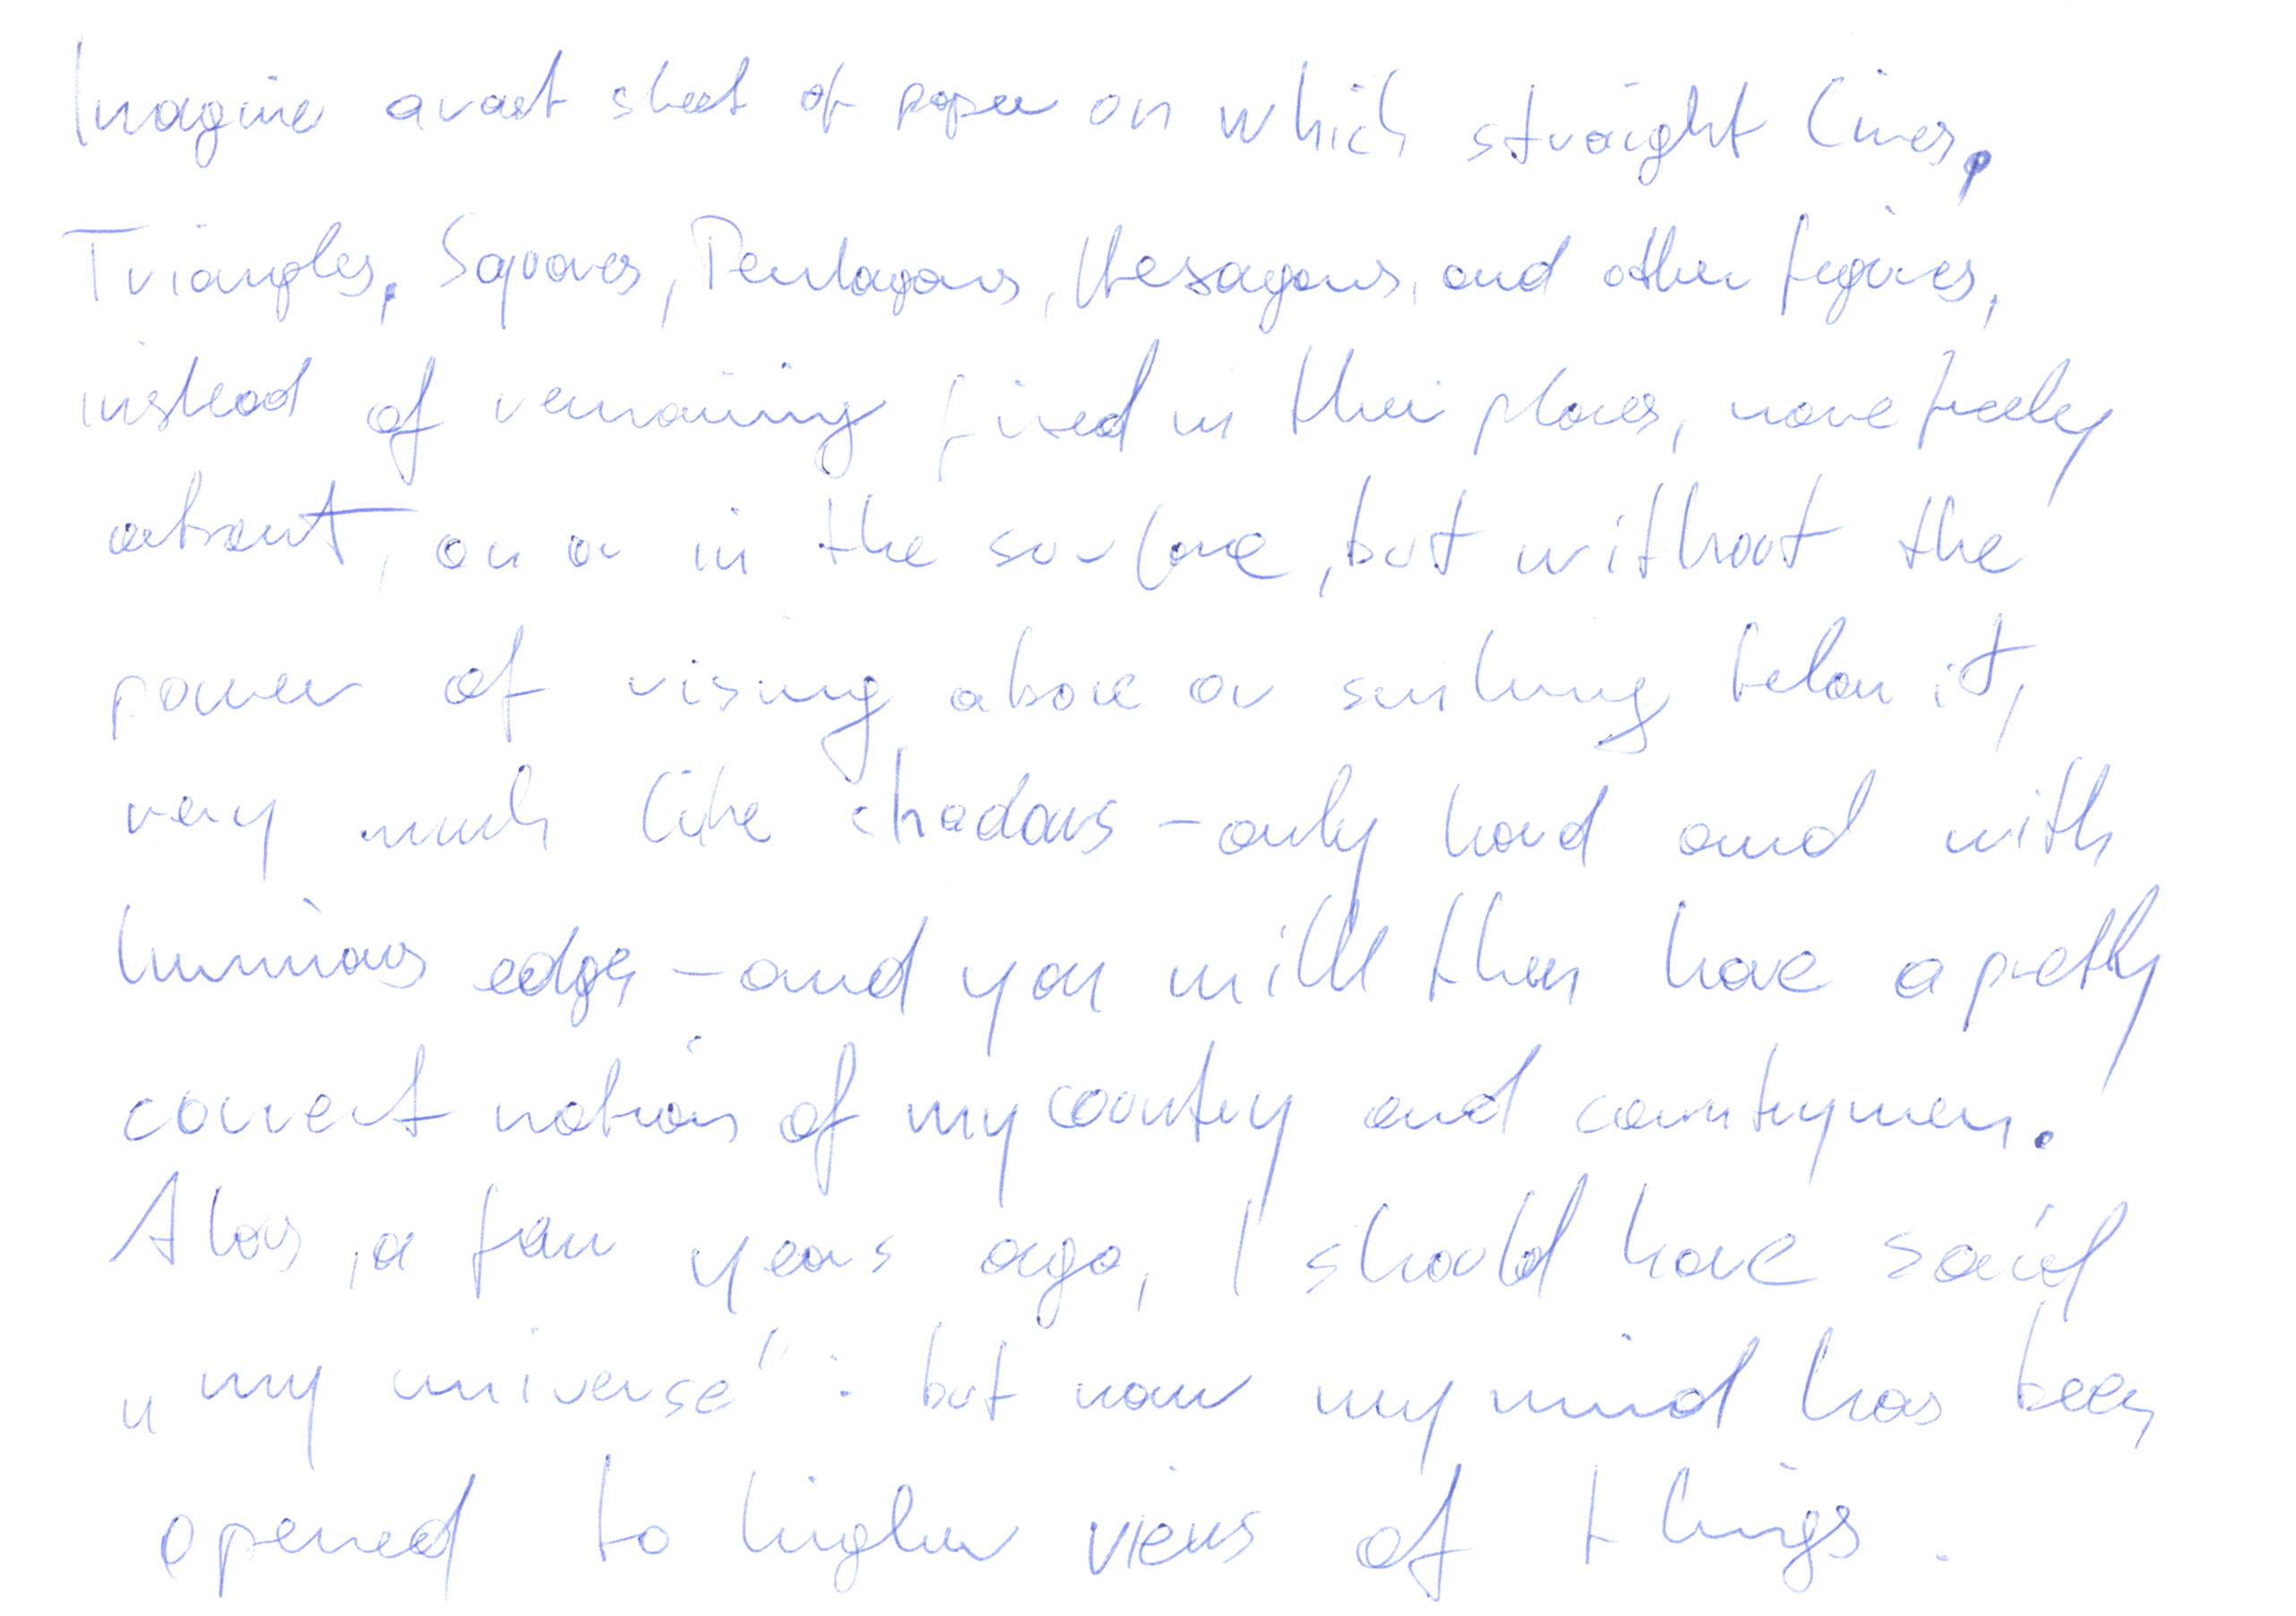 Imagine a vast sheet of paper on which straight Lines,
Triangles, Squares, Pentagons, Hexagons, and other figures,
instead of remaining fixed in their places, move freely
about, on or in the surface, but without the
power of rising above or sinking below it,
very much like shadows - only hard and with
luminous edges - and you will then have a pretty
correct notion of my country and countrymen.
Alas, a few years ago, I should have said
„my universe": but now my mind has been
opened to higher views of things.